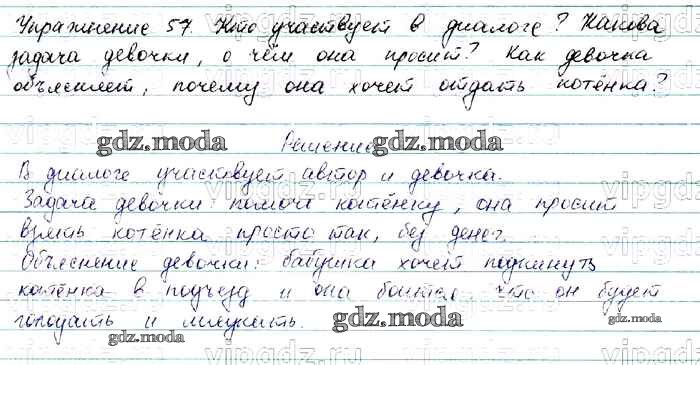 Упражнение 57. Кто участвует в диалоге? Какова
задача девочки, о чём она просит? Как девочка
объясняет, почему она хочет отдать котёнка?
gdz.moda Решение gdz.moda
В диалоге участвует автор и девочка.
vipgdz.ru
Задача девочки помочь котёнку, она просит
взять котёнка просто так, без денег.
Объяснение девочки: бабушка хочет подкинуть
котёнка в подъезд и она боится что он будет
голодать и мяукать.
gdz.moda gdz.moda gdz.moda
vipgdz.ru